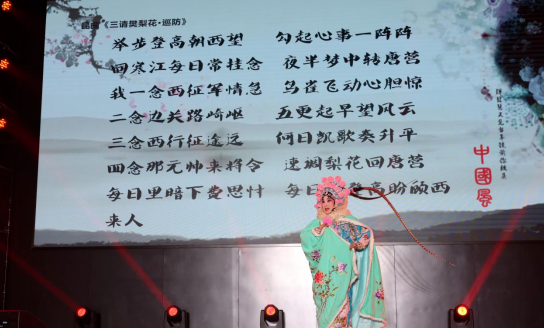 昆曲《三请樊梨花·巡防》
举步登高朝西望 勾起心事一阵阵
回寒江每日常挂念 夜半梦中转唐营
我一念西征军情急 乌雀飞动心胆惊
二念边关路崎岖 五更起早望风云
三念西行征途远 何日凯歌奏升平
四念那元帅来将令 速调梨花回唐营
每日里暗下费思忖 每日 登高盼顾西
来人
中國風